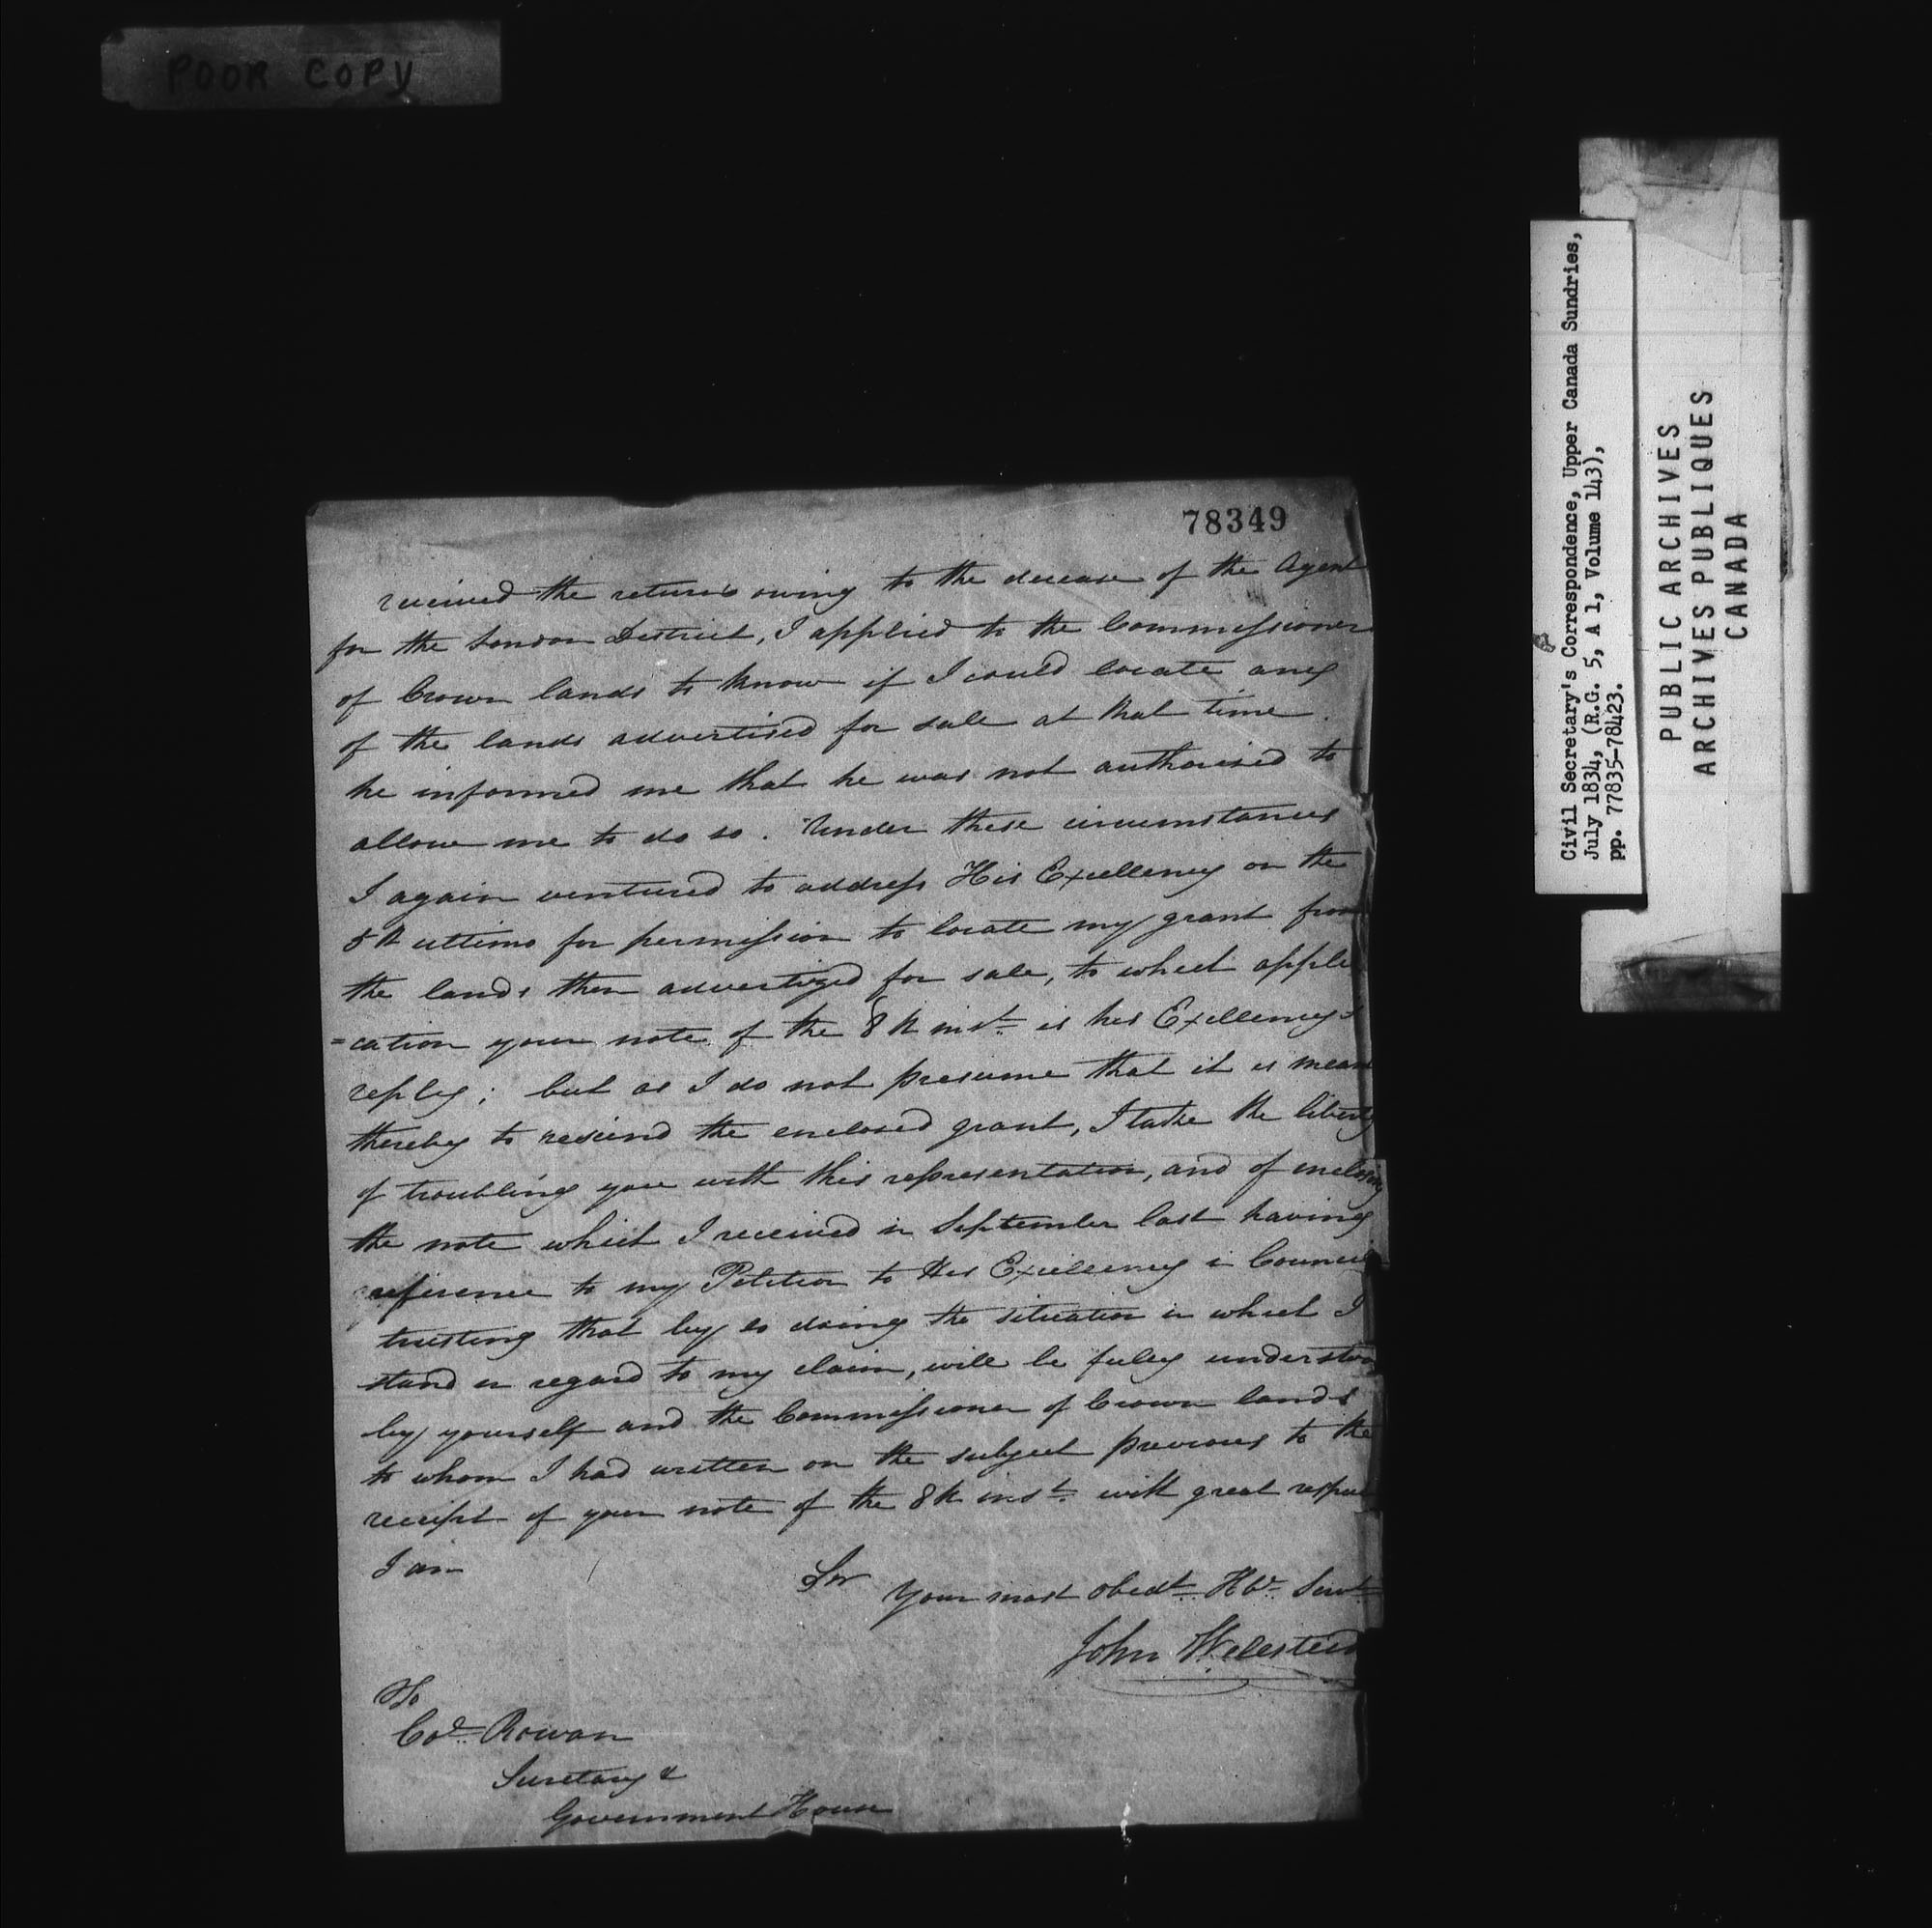 POOR COPY
78349
received the returns owing to the decease of the Agent
for the London District, I applied to the Commissioner
of Crown lands to know if I could locate any
of the lands advertised for sale at that time.
he informed me that he was not authorised to
allow me to do so. Under these circumstances
I again ventured to address His Excellency on the
5th ultimo for permission to locate my grant from
the lands then advertized for sale, to which appli
=cation your note of the 8th inst. is his Excellency's
reply; but as I do not presume that it is meant
thereby to rescind the enclosed grant, I take the liberty
of troubling you with this representation, and of inclosing
the note which I received in September last having
reference to my Petition to His Excellency in Council
trusting that by so doing the situation in which I
stand in regard to my claim, will be fully understoo
by yourself and the Commissioner of Crown lands
to whom I had written on the subject previous to the
receipt of your note of the 8th inst. with great respect
I am
Sir
Your most obedt. Hble. Servt.
John
To
Col. Rowan
Secretary &
Government House
Civil Secretary's Correspondence, Upper Canada Sundries,
July 1834, (R.G. 5, A 1, Volume 143),
pp. 77835-78423.
PUBLIC ARCHIVES
ARCHIVES PUBLIQUES
CANADA